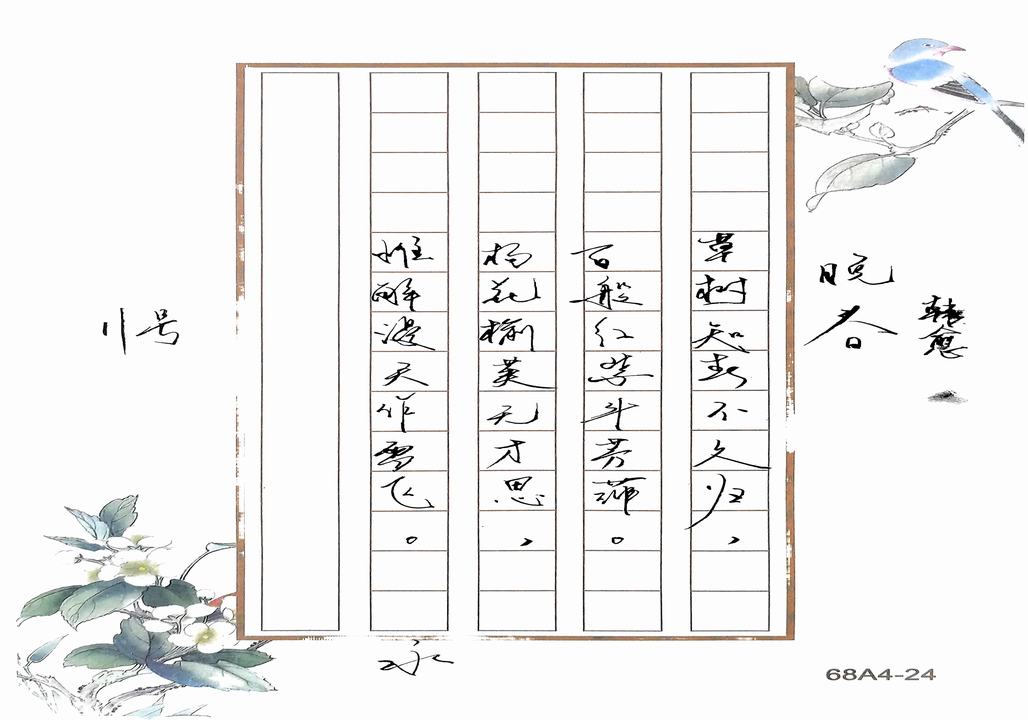 晚春
韩愈
草树知春不久归，
百般红紫斗芳菲。
杨花榆荚无才思，
惟解漫天作雪飞。
68A4-24